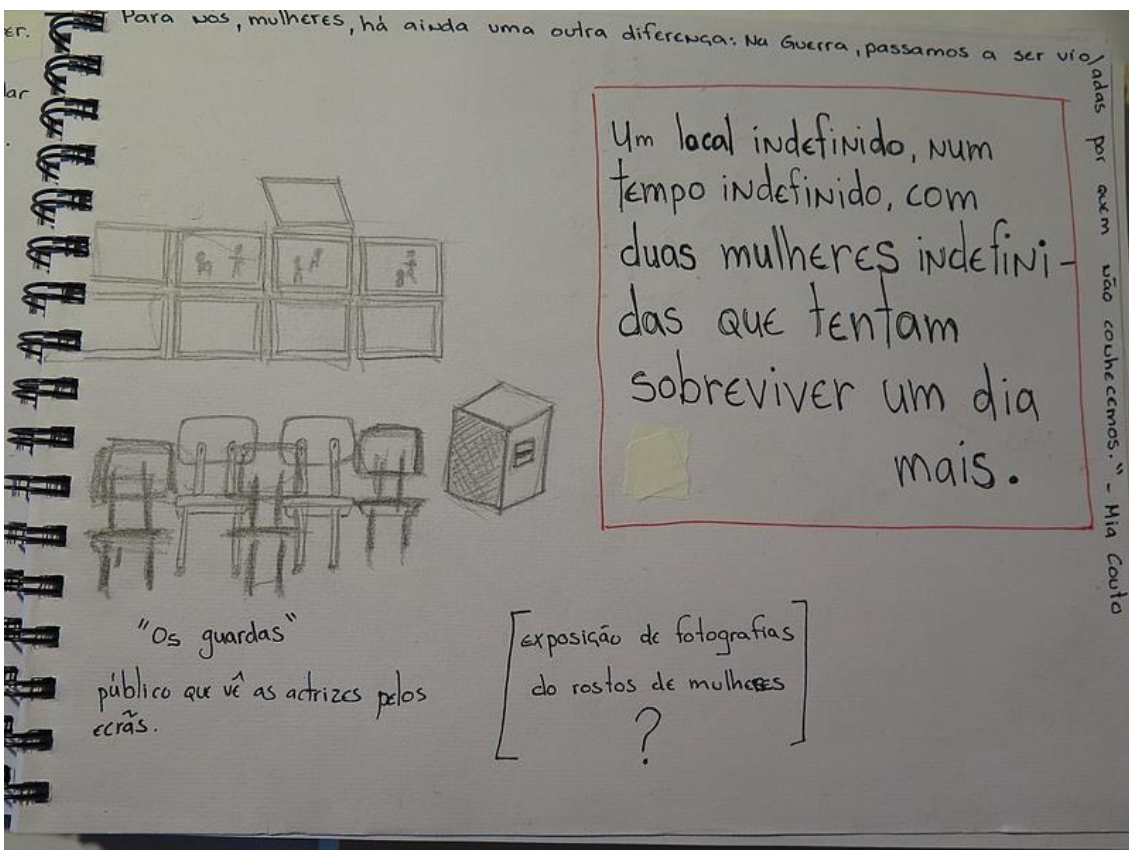 er.
lar
.
Para nós, mulheres, há ainda uma outra diferença: Na Guerra, passamos a ser violadas por quem não conhecemos." - Mia Couto
Um local indefinido, num
tempo indefinido, com
duas mulheres indefini-
das que tentam
sobreviver um dia
mais.
"Os guardas"
público que vê as actrizes pelos
ecrãs.
exposição de fotografias
do rostos de mulheres
?